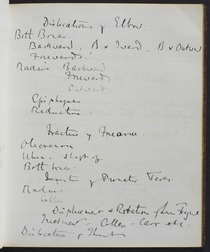 Dislocations of Elbow
Both Bones
Backward, B & Inward, B & Outw
Forwards
Radius Backward
Forwards
Outward
Epiphyses
Reduction
Fracture of Forearm
Olecranon
Ulna. Shaft of
Both bones
Insertion of Pronator Teres
Radius
Colles
Displacement & Rotation of
Treatment - Colles - Carr
Dislocation of Thumb